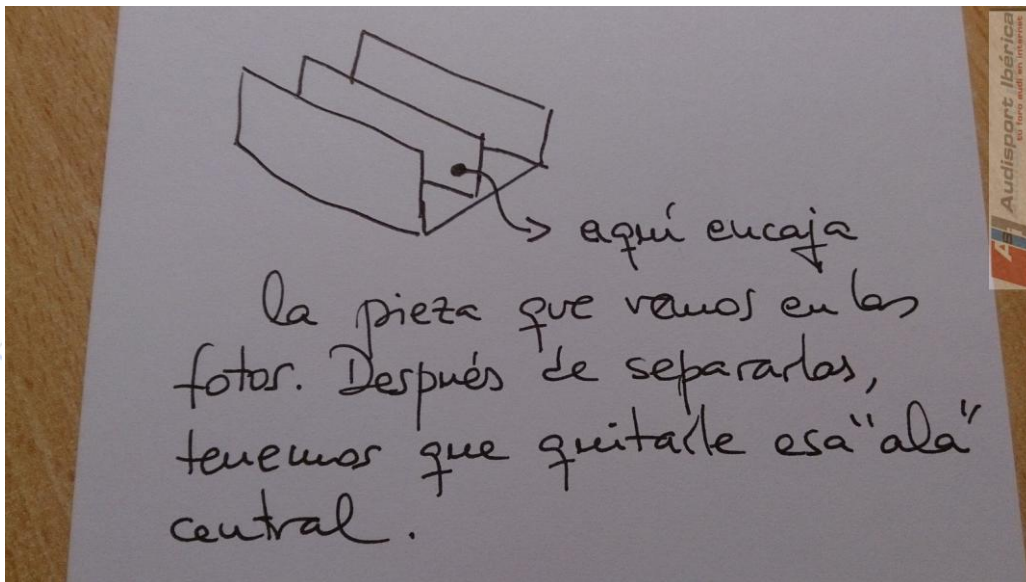 aquí encaja
la pieza que vemos en las
fotos. Después de separarlas,
tenemos que quitarle esa "ala"
central.
Audisport Ibérica
tu foro audi en internet